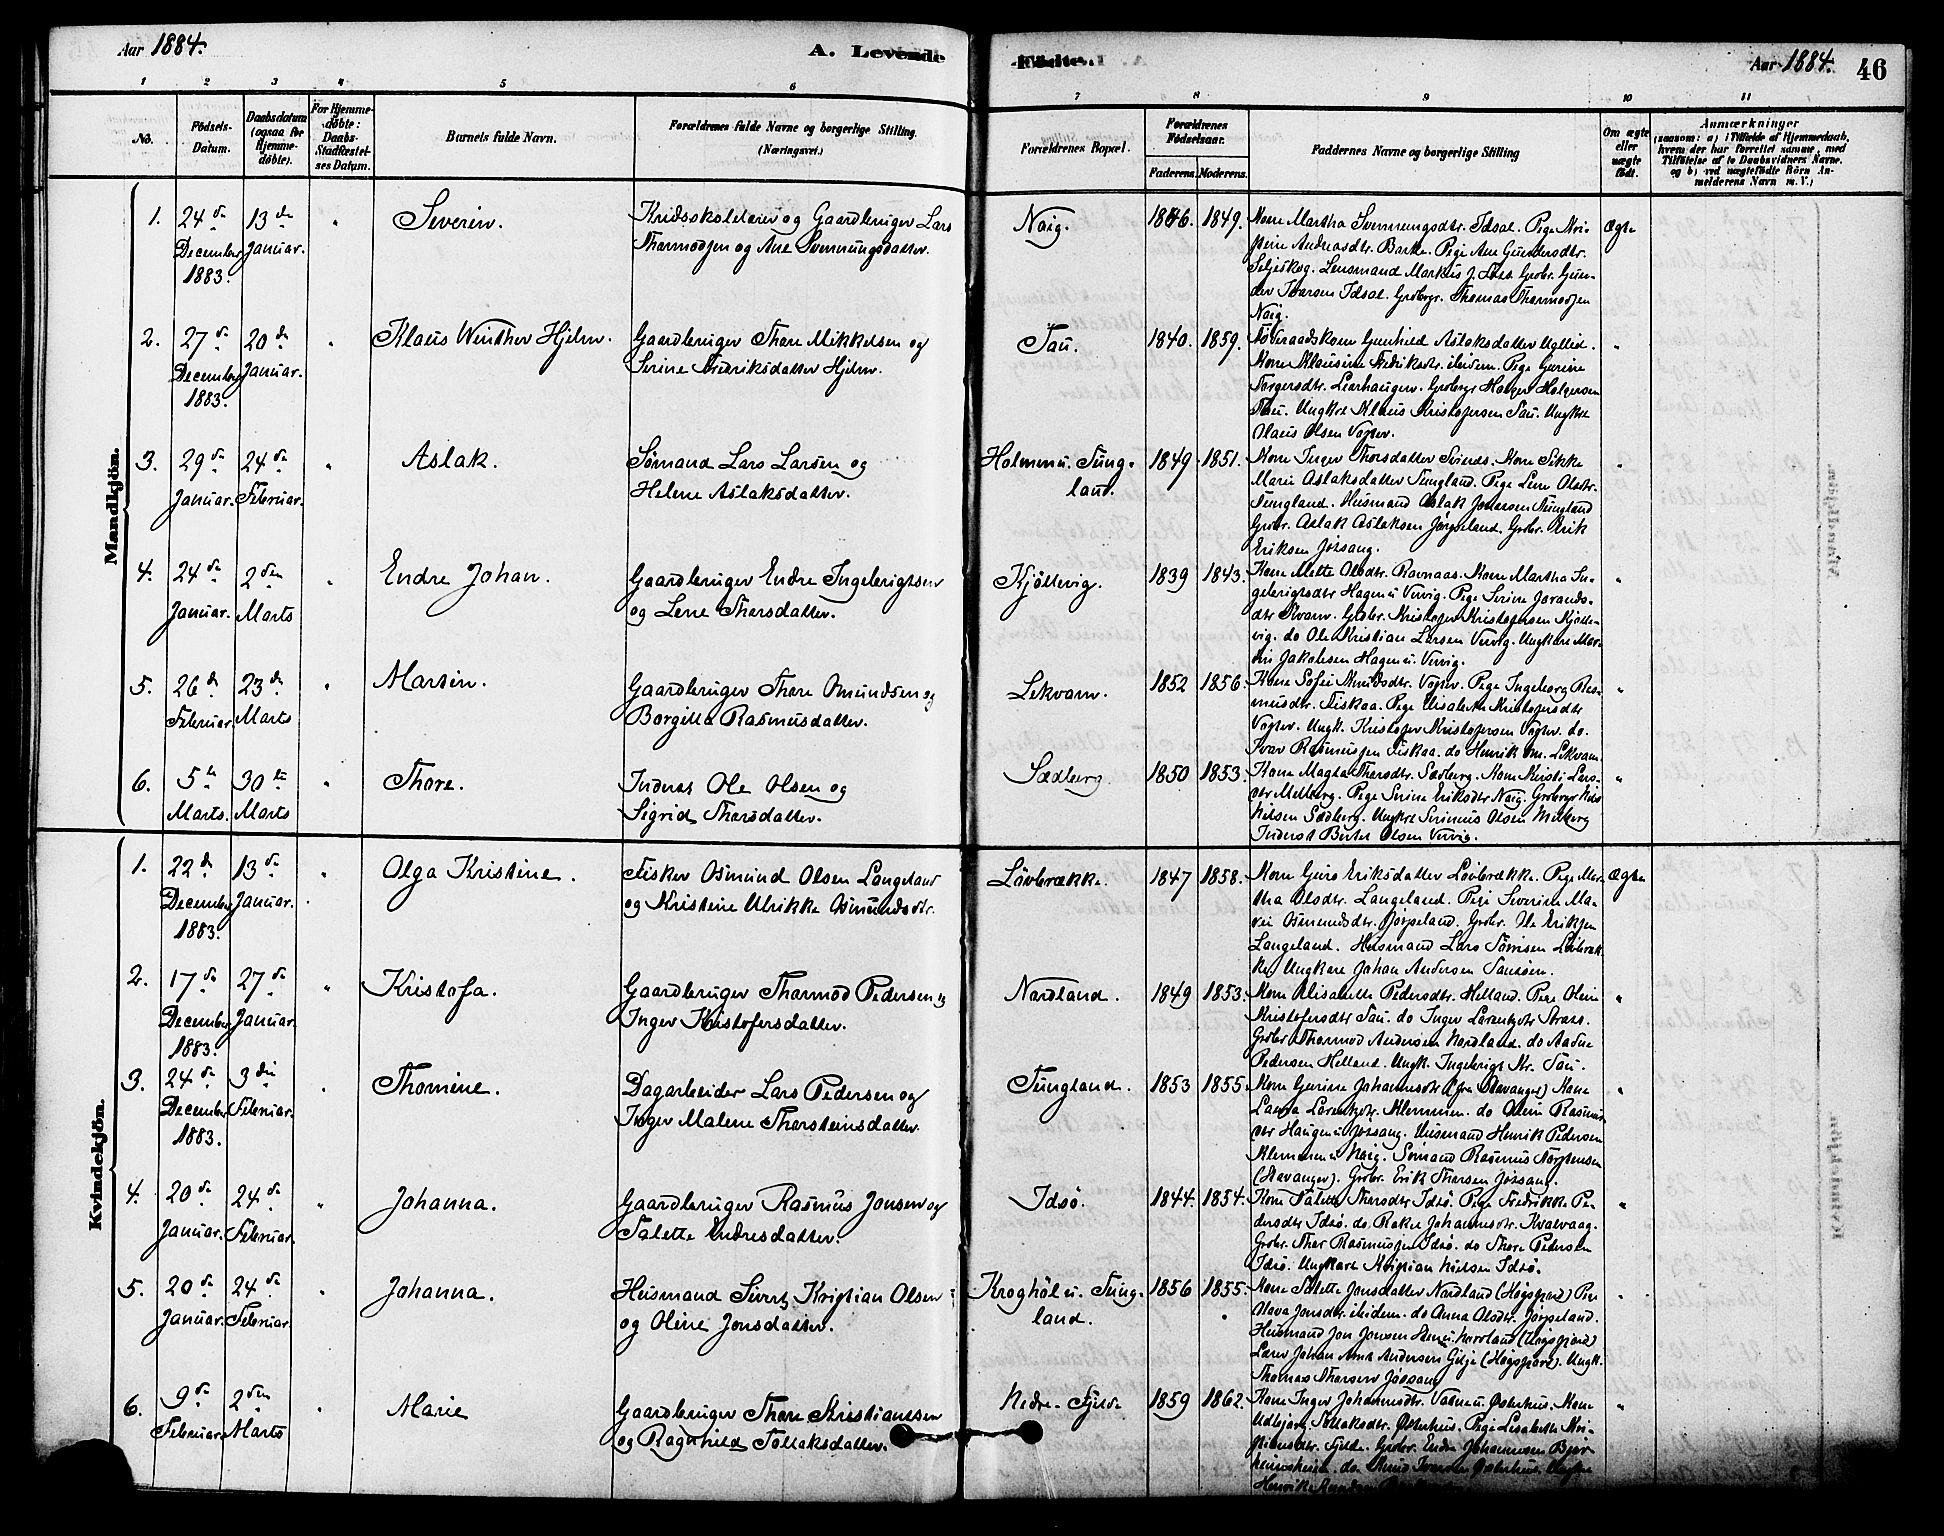 Aar 1884.
A. Levende
Fødte.
Aar 1884.
46
1 2 3 4 5 6 7 8 9 10 11
No.
Fødsels-
Datum.
Daabsdatum
(ogsaa for
Hjemme-
døbte).
For Hjemme-
døbte:
Daabs-
Stadfestel-
ses Datum.
Barnets fulde Navn.
Forældrenes fulde Navne og borgerlige Stilling.
(Næringsvei.)
Forældrenes Bopæl.
Forældrenes
Fødselsaar.
Faderens. Moderens.
Faddernes Navne og borgerlige Stilling
Om ægte
eller
uægte
født.
Anmærkninger
(saasom: a) i Tilfælde af Hjemmedaab,
hvem der har forrettet samme, med
Tilføielse af to Daabsvidners Navne.
og b) ved uægtefødte Børn An-
melderens Navn m. V.)
Mandkjøn.
1. 24de December 1883. 13de Januar. " Severin.
Kredsskolelærer og Gaardbruger Lars
Thormodsen og Ane Svenningsdatter.
Naig. 1846. 1849.
Kone Martha Svenningsdtr. Idsal. Pige
Andreasdtr. Barke. Pige Ane Gundersdtr.
Seljeskog. Lensmand Markus J. Grdbr. Gun-
der Ivarsen Idsal. Grdbrgr. Thomas Thormodsen
Naig.
Ægte
2. 27de December 1883. 20de Januar. " Klaus Winther Hjelm.
Gaardbruger Thore Mikkelsen og
Serine Fredriksdatter Hjelm.
Tau. 1840. 1859.
Føderaadskone Gunhild Aslaksdatter
Kone Klausine Fredriksdtr. ibidem. Pige Gurine
Torgersdtr. Leerhaugen. Grdbrgr Holger Holgersen
Tau. Ungkrl Klaus Kristofersen Tau. Ungkrl
Olaus Olsen Vogter.
"
3. 29de Januar. 24de Februar. " Aslak.
Sømand Lars Larsen og
Helene Aslaksdatter.
Holmen u. Tung-
land.
1849. 1851.
Kone Inger Thorsdatter Kone Sikke
Marie Aslaksdatter Tungland. Pige Lene Olsdtr.
Tungland. Husmand Aslak Tungland
Grdbr. Aslak Aslaksen Jørpeland. Grdbr. Erik
Eriksen Jøssang.
"
4. 24de Januar. 2den Marts " Endre Johan.
Gaardbruger Endre Ingebrigtsen
og Lene Thorsdatter.
Kjøllevig. 1839 1843.
Kone Mette Olsdtr. Ravnaas. Kone Martha In-
gebrigtsdtr Hagen u Vervig. Pige Serine
dtr Kvam. Grdbr. Kristofer Kristofersen Kjølle-
vig. do Ole Kristian Larsen Vervig. Ungkarl Mar-
Jakobsen Hagen u. Vervig.
"
5. 26de Februar. 23de Marts " Marsin.
Gaardbruger Thore Osmundsen og
Borgilla Rasmusdatter.
Lekvam. 1852 1856.
Kone Sofie Vogter. Pige Ingeborg Ras-
musdtr. Fiskaa. Pige Elisabeth Kristofersdtr
Vogter. Ungk. Kristofer Kristofersen Vogter. do.
Ivar Rasmussen Fiskaa. do Henrik Lekvam
"
6. 5te Marts. 30te Marts " Thore.
Inderst Ole Olsen og
Sigrid Thorsdatter.
Sædberg. 1850 1853.
Kone Magla Thorsdtr. Sædberg. Kone Kristi Lars-
dtr Melberg. Pige Serine Eriksdtr Naig. Grdbrgr Nils
Nilsen Sædberg. Ungkrl Serinius Olsen Melberg
Inderst Bertel Olsen Vervig.
"
Kvindekjøn.
1. 22de December 1883. 13de Januar. " Olga Kristine.
Fisker Osmund Olsen Langeland
og Kristine Ulrikke Osmundsdtr.
Løvbrække. 1847 1858.
Kone Guro Eriksdatter Løvbrække. Pige Mar-
tha Olsdtr. Langeland. Pige Severine Ma-
rie Osmundsdtr. Jørpeland. Grdbr. Ole Eriksen
Langeland. Husmand Lars Løvbræk-
ke. Ungkarl Johan Andersen
Ægte
2. 17de December 1883. 27de Januar. " Kristofa.
Gaardbruger Thormod Pedersen og
Inger Kristofersdatter.
Nordland. 1849 1853.
Kone Elisabeth Pedersdtr. Helland. Pige Oline
Kristofersdtr Tau. do Inger Larentzdtr
Grdbr Thormod Andersen Nordland. do Aadne
Pedersen Helland. Ungk. Ingebrigt Tau.
"
3. 24de December 1883. 3die Februar. " Thomine.
Dagarbeider Lars Pedersen og
Inger Malene Thorsteinsdatter.
Tungland. 1853 1855.
Kone Gurine Johannesdtr (fra Stavanger) Kone
Laura Larentzdtr. Klemmen. do Oline Rasmus-
dtr Haugen u Jøssang. Husmand Henrik Pedersen
Klemmen u Naig. Sømand Rasmus
(Stavanger). Grdbr. Erik Thorsen Jøssang.
"
4. 20de Januar. 24de Februar. " Johanna.
Gaardbruger Rasmus Jonsen og
Talette Endresdatter.
Idsø. 1844. 1854.
Kone Thorsdtr. Idsø. Pige Fredrikke Pe-
dersdtr Idsø. do Rakel Johannesdtr. Kvalvaag.
Grdbr. Thor Rasmussen Idsø. do Thore Pedersen
Idsø. Ungkarl Kristian Nielsen Idsø.
"
5. 20de Januar. 24de Februar. " Johanna.
Husmand Sivert Kristian Olsen
og Oline Jonsdatter.
Kroghøl u. Tung-
land.
1856 1855.
Kone Talette Jonsdatter Nordland (Høgsfjord) Pige
Olava Jonsdtr. ibidem. do Anna Olsdtr. Jørpeland.
Husmand Jon Jonsen (Høgsfjord)
Lærer Johan Andersen Gilje (Høgsfjord). Ungk.
Thomas Thorsen Jøssang
"
6. 9de Februar. 2den Marts " Marie
Gaardbruger Thore Kristianssen
og Ragnhild Tollaksdatter.
Nedre-Fjelde 1859 1862.
Kone Inger Johannesdtr. Østerhus. Kone
Udbjørg Tollaksdtr. Østerhus. Pige Lisabeth Kri-
stiansdtr. Fjelde. Grdbr. Endre Johannesen
do. Knud Ivarsen Østerhus. Ungkrl
Henrik
"